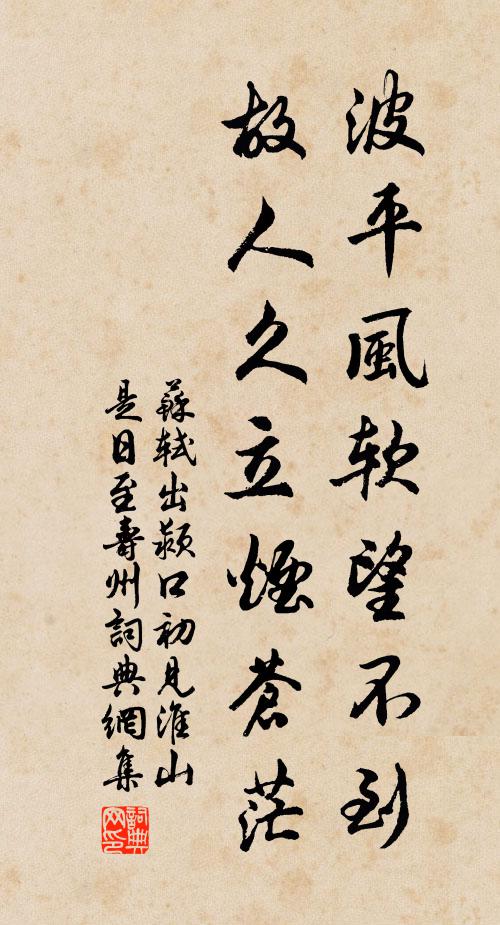 波平風軟望不到
故人久立煙蒼茫
蘇軾出潁口初見淮山
是日至壽州詞典網集
詞典
网印